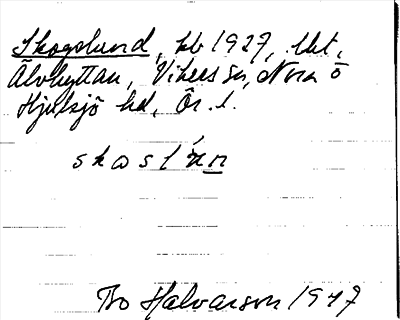 Skogslund, kb 1927, lht,
Älvhyttan, Vikers sn, Nora o
Hjulsjö hd, Ör. l.
skɷslún
Bo Halvarson 1947